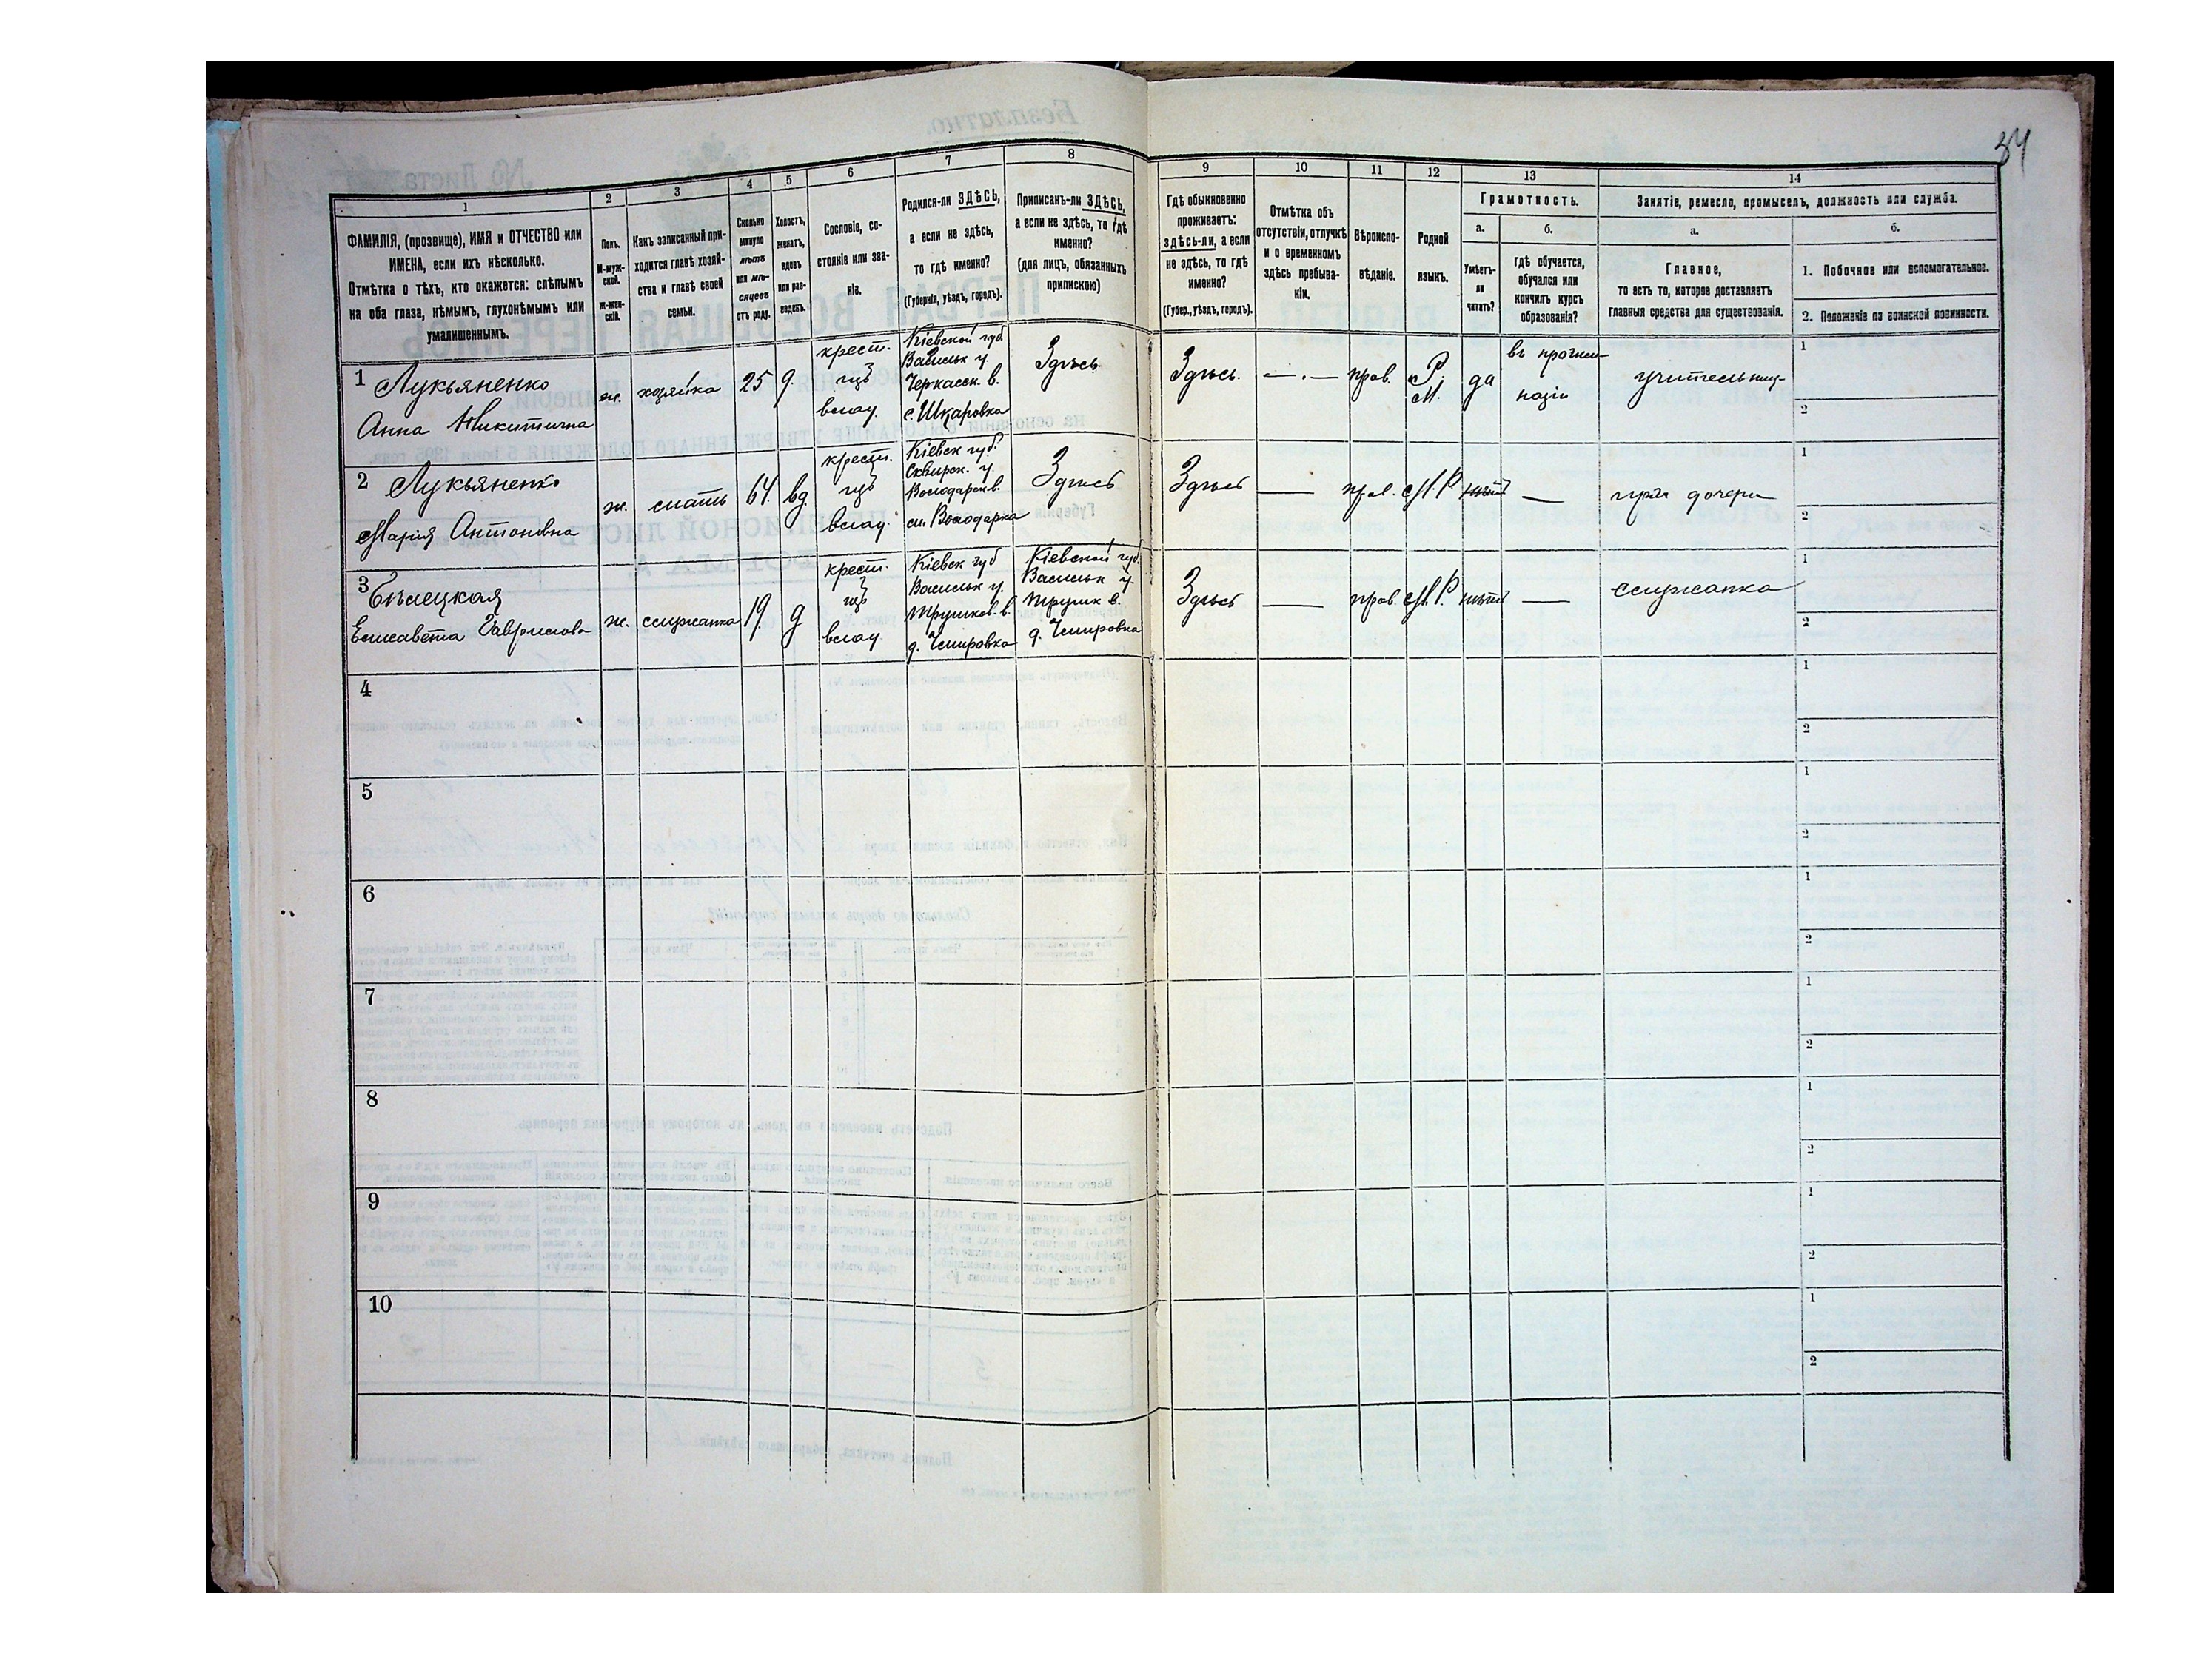 34
1
2
3
4
5
6
7
8
9
10
11
12
13
14
ФАМИЛІЯ, (прозвище), ИМЯ и ОТЧЕСТВО или
ИМЕНА, если ихъ нѣсколько.
Отмѣтка о тѣхъ, кто окажется: слѣпымъ
на оба глаза, нѣмымъ, глухонѣмымъ или
умалишеннымъ.
Полъ.
М-муж-
ской.
ж-жен-
скій.
Какъ записанный при-
ходится главѣ хозяй-
ства и главѣ своей
семьи.
Сколько
минуло
лѣтъ
или мѣ-
сяцевъ
отъ роду.
Холостъ,
женатъ,
вдовъ
или раз-
веденъ.
Сословіе, со-
стояніе или зва-
ніе.
Родился-ли ЗДѢСЬ,
а если не здѣсь,
то гдѣ именно?
(Губернія, уѣздъ, городъ).
Приписанъ-ли ЗДѢСЬ,
а если не здѣсь, то гдѣ
именно?
(для лицъ, обязанныхъ
припискою)
Гдѣ обыкновенно
проживаетъ:
здѣсь-ли, а если
не здѣсь, то гдѣ
именно?
(Губер., уѣздъ, городъ).
Отмѣтка объ
отсутствіи, отлучкѣ
и о временномъ
здѣсь пребыва-
ніи.
Вѣроиспо-
вѣданіе.
Родной
языкъ.
Грамотность.
а.
Умѣетъ-
ли
читать?
б.
гдѣ обучается,
обучался или
кончилъ курсъ
образованія?
Занятіе, ремесло, промыселъ, должность или служба.
а.
Главное,
то есть то, которое доставляетъ
главныя средства для существованія.
б.
1. Побочное или вспомогательное.
2. Положеніе по воинской повинности.
1 Лукьяненко
Анна Никитична
ж.
хозяйка
25
д.
крест.
изъ
влад.
Кіевской губ.
Васильк у.
Черкасск. в.
с. Шкаровка
Здѣсь
Здѣсь.
—.—
прав.
Р.
М.
да
въ прогим-
назіи
учительниц-
1
2
2 Лукьяненко
Марія Антоновна
ж.
мать
64.
вд.
крест.
изъ
влад.
Кіевск губ.
Сквирск. у.
Володарск в.
м. Володарка
Здѣсь
Здѣсь
—
прав.
М.Р.
нѣтъ
—
при дочери
1
2
3 Бѣлецкая
Елисавета Гаврилова
ж.
служанка
19.
д
крест.
изъ
влад
Кіевск губ
Васильк у.
Трушков. в.
д. Чмировка
Кіевской губ.
Васильк у.
Трушк в.
д. Чмировка
Здѣсь
—
прав.
М.Р.
нѣтъ
—
служанка
1
2
4
1
2
5
1
2
6
1
2
7
1
2
8
1
2
9
1
2
10
1
2